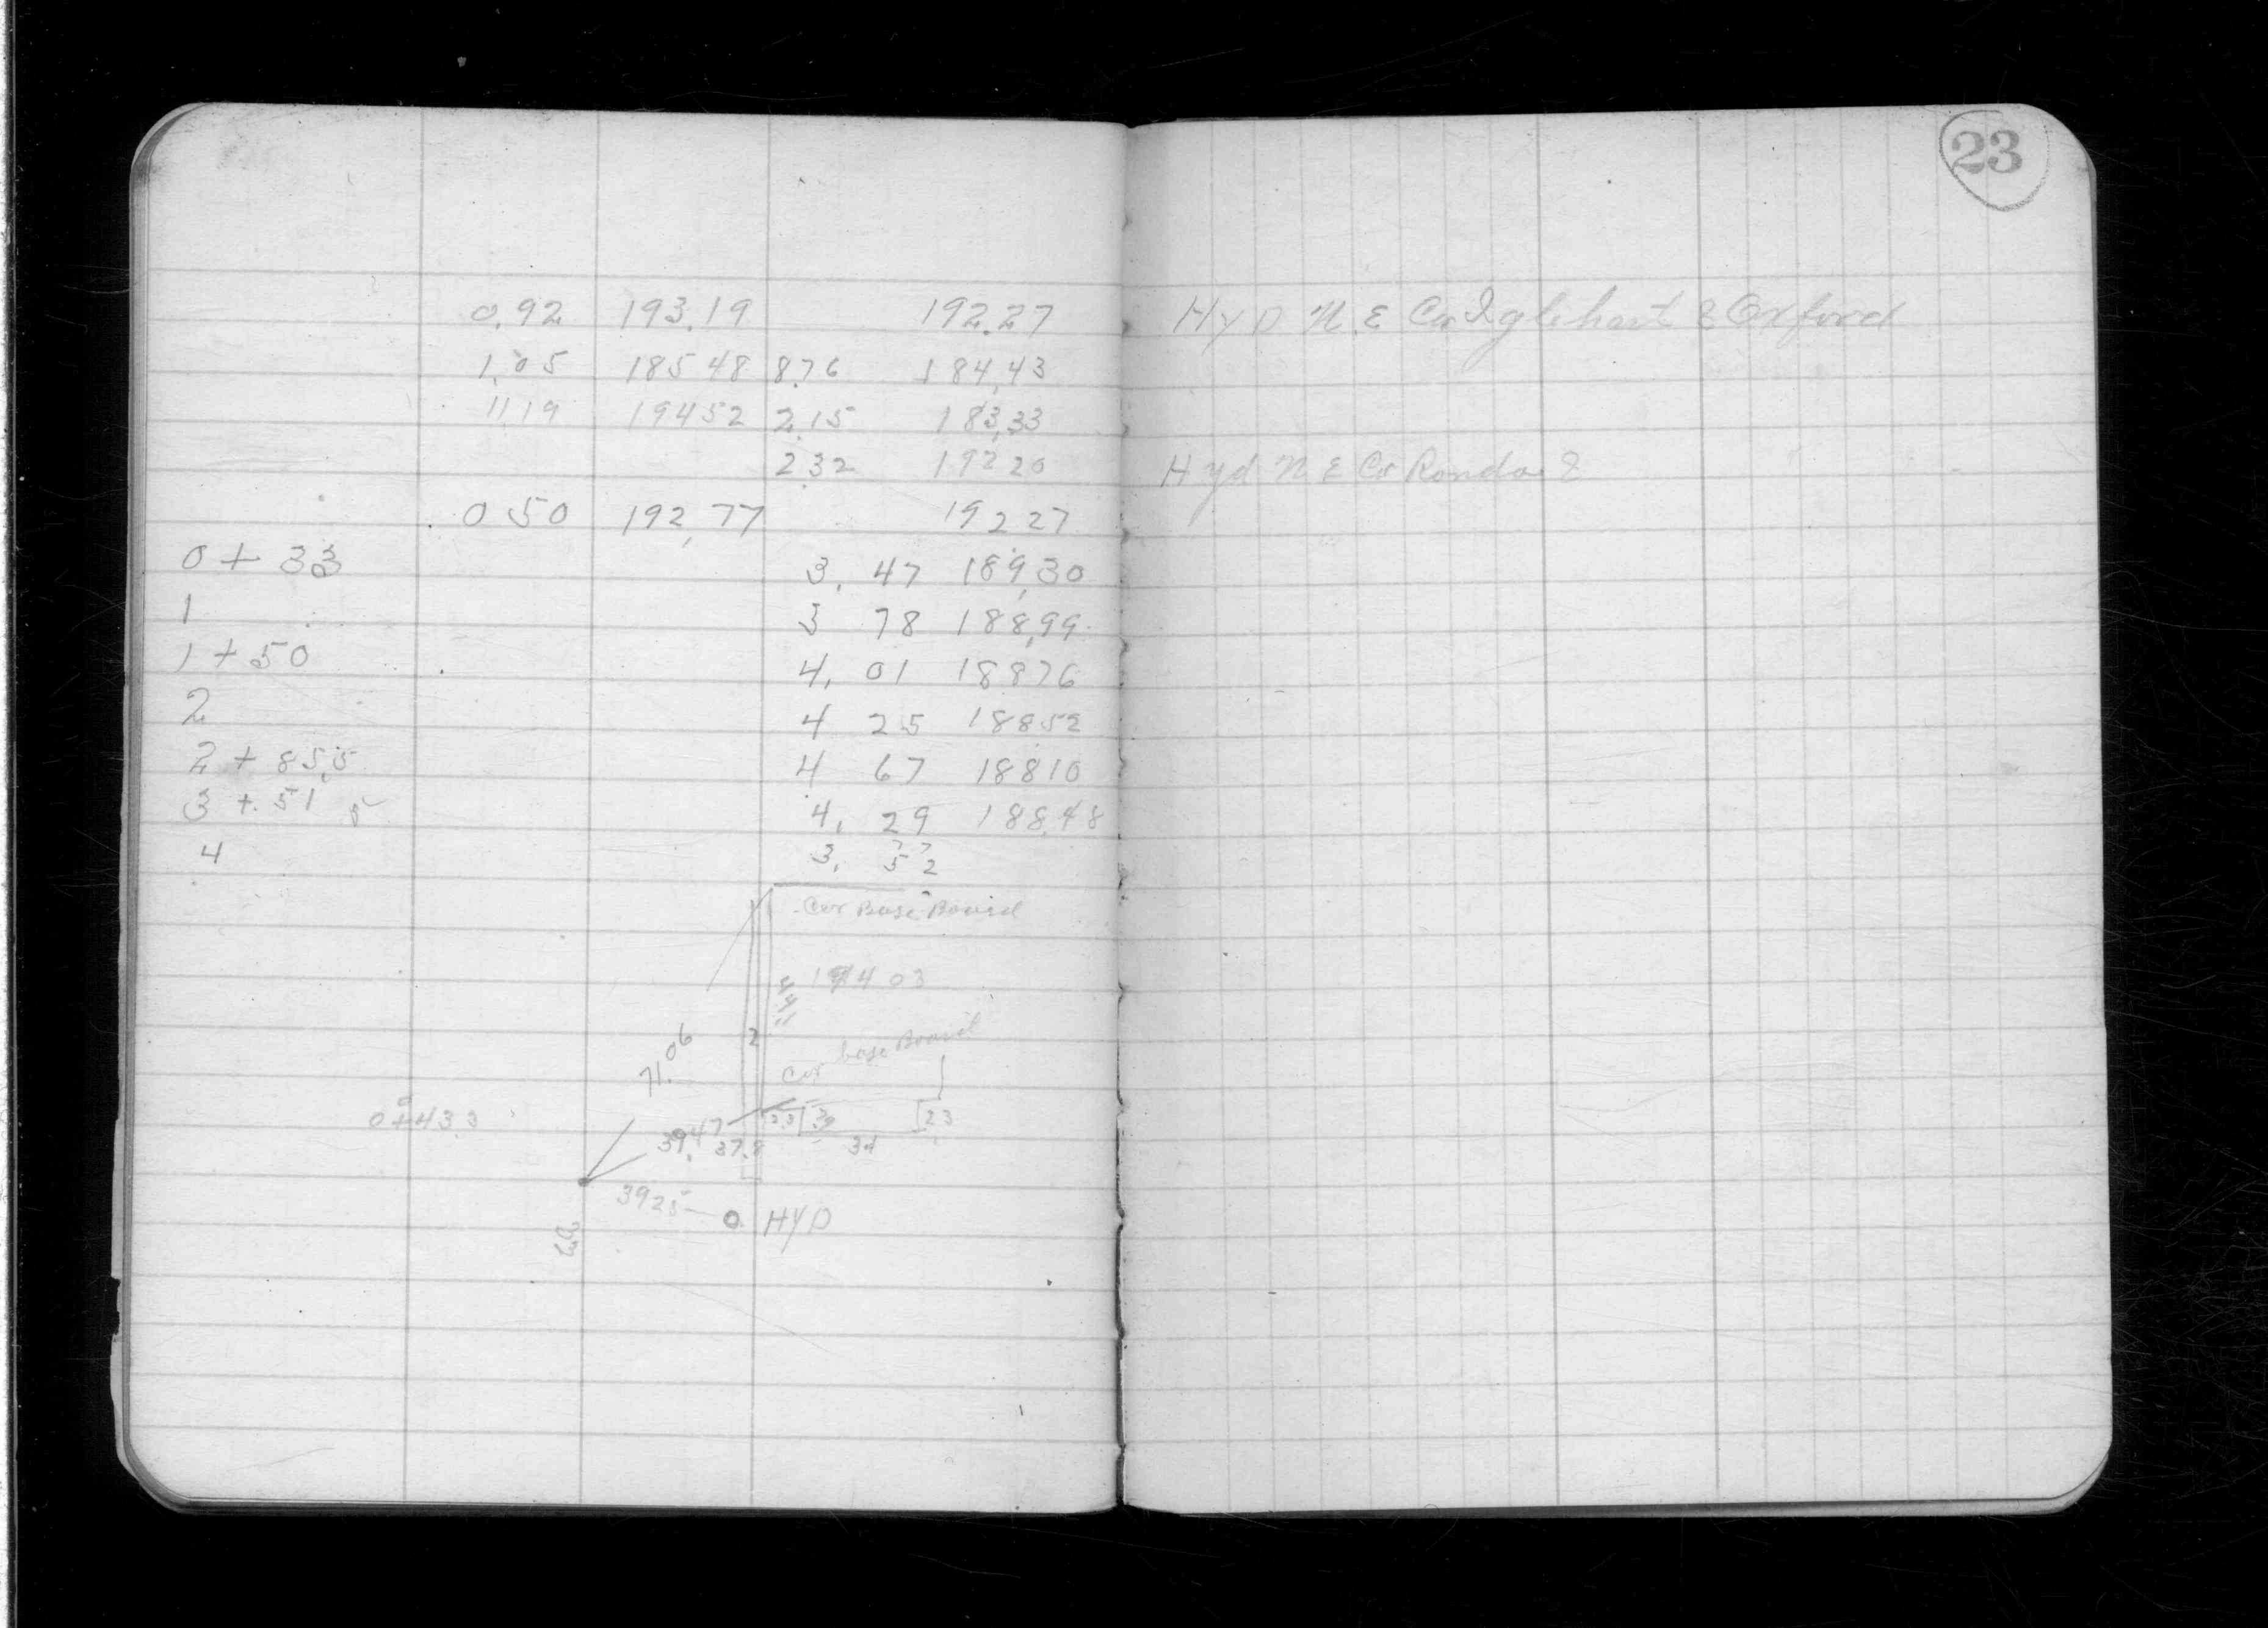 23
0.92 193.19 192.27 HYD N.E Cor Iglehart & Oxford
1.05 185 48 8.76 184.43
11.19 194 52 2.15 183.33
2.32 192 20 Hyd N E Cor Rondo &
0 50 192.77 192 27
0 + 33 3. 47 189.30
1 3 78 188.99
1 + 50 4. 01 188 76
2 4 25 188 52
2 + 85.5 4 67 188 10
3 + 51 5 4. 29 188.48
4 3. 52
Cor Base Board
03
Cor base Board
71.06
2
0+43.3
39.47
37.8
34
23
39 25
HYD